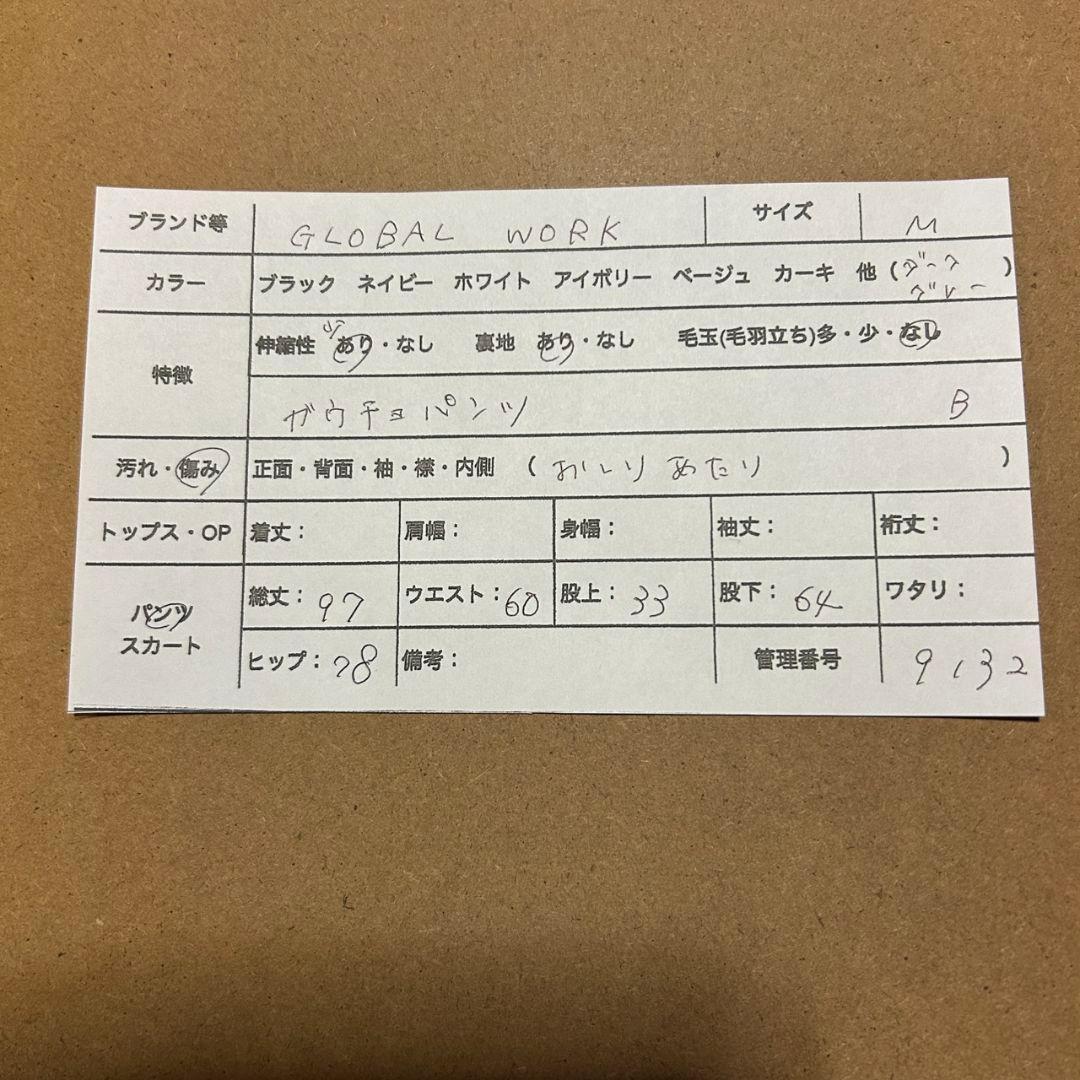 ブランド等 GLOBAL WORK サイズ M
カラー ブラック ネイビー ホワイト アイボリー ベージュ カーキ 他 (ダーク
グレー)
特徴 伸縮性 少 あり・なし 裏地 あり・なし 毛玉(毛羽立ち)多・少・なし
ガウチョパンツ B
汚れ・傷み 正面・背面・袖・襟・内側 (おしりあたり)
トップス・OP 着丈: 肩幅: 身幅: 袖丈: 裄丈:
パンツ 総丈:97 ウエスト:60 股上:33 股下:64 ワタリ:
スカート ヒップ:78 備考: 管理番号 9132